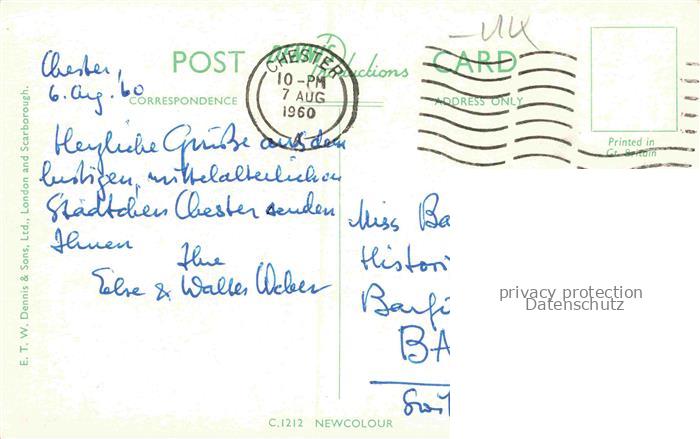 POST CARD
Dennis Productions
CORRESPONDENCE
ADDRESS ONLY
Printed in
Gt. Britain
CHESTER
10-PM
7 AUG
1960
Chester,
6. Aug. 60
Herzliche Grüße aus dem
lustigen, mittelalterlichen
Städtchen Chester senden
Ihnen
Ihre
Else & Walter Weber
Miss Ba
Histori
Barfü
BA
Swit
privacy protection
Datenschutz
E. T. W. Dennis & Sons, Ltd., London and Scarborough.
C.1212 NEWCOLOUR